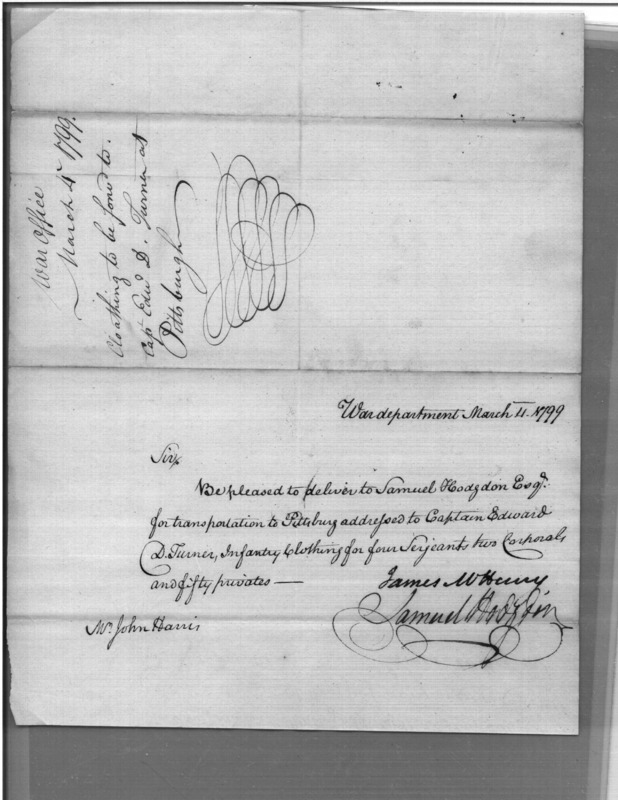 War Office
March 4th 1799.
Cloathing to be forwd to.
Capt Edwd D. Turner at
Pittsburgh
War department March 4. 1799
Sir,
Be pleased to deliver to Samuel Hodgdon Esqr.
for transportation to Pittsburg addressed to Captain Edward
D. Turner, Infantry Clothing for four Serjeants two Corporals
and fifty privates —
James McHenry
Samuel Hodgdon
Mr. John Harris